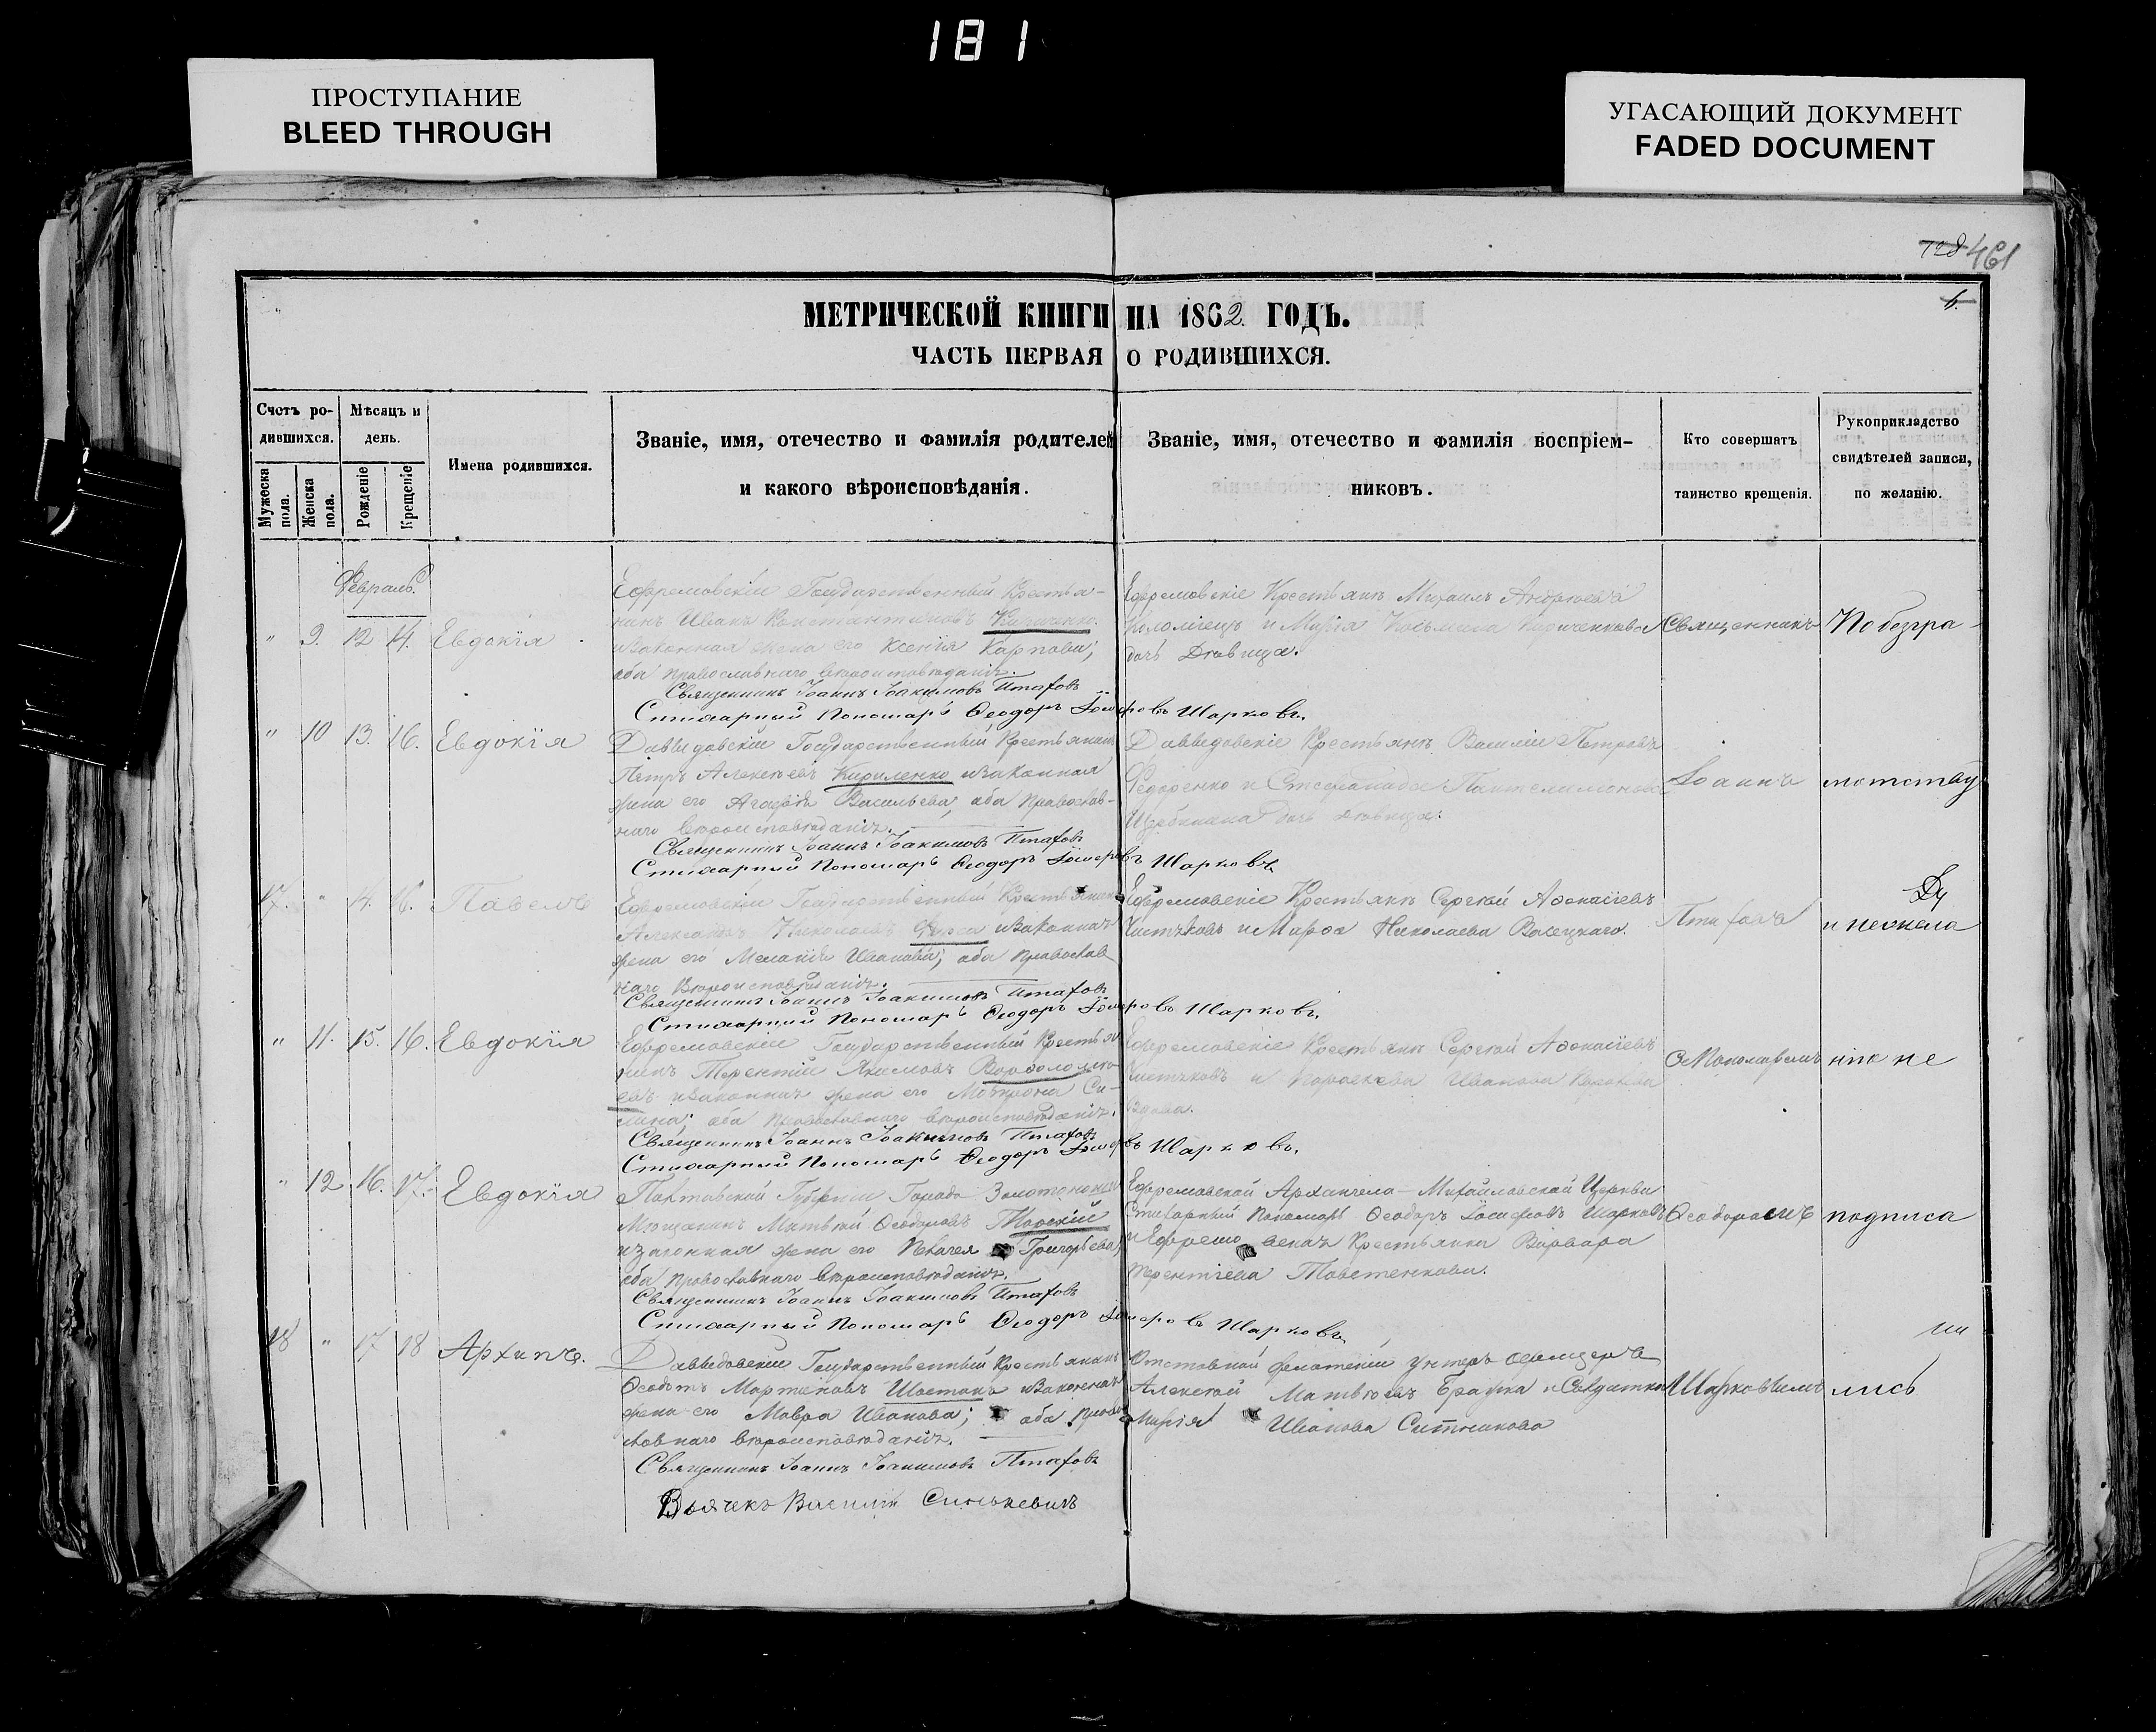 181
ПРОСТУПАНИЕ
BLEED THROUGH
УГАСАЮЩИЙ ДОКУМЕНТ
FADED DOCUMENT
728 461
6.
МЕТРИЧЕСКОЙ КНИГИ НА 1862 ГОДЪ.
ЧАСТЬ ПЕРВАЯ О РОДИВШИХСЯ.
Счетъ ро-
дившихся.
Мужеска пола.
Женска пола.
Мѣсяцъ и
день.
Рожденіе
Крещеніе
Имена родившихся.
Званіе, имя, отечество и фамилія родителей
и какого вѣроисповѣданія.
Званіе, имя, отечество и фамилія воспріем-
никовъ.
Кто совершатъ
таинство крещенія.
Рукоприкладство
свидѣтелей записи,
по желанію.
Февраль.
" 9. 12 14. Евдокія
Ефремовскій Государственный Крестья-
нинъ Иванъ Константиновъ Кириченко.
изаконная жена его Ксенія Карпова;
оба православнаго вѣроисповѣданія.
Священникъ Іоаннъ Іоакимовъ Птаховъ
Стихарный Пономарь Ѳеодоръ Іосифовъ Шарковъ.
Ефремовскіе Крестьянъ Михаилъ Андреевъ
и Марія
дочь Дѣвица.
Священникъ
По безгра-
" 10 13. 16. Евдокія
Давыдовскій Государственный Крестьянинъ
Петръ Алексѣевъ Кириленко изаконная
жена его Агафія Васильева, оба Православ-
наго вѣроисповѣданія.
Священникъ Іоаннъ Іоакимовъ Птаховъ
Стихарный Пономарь Ѳеодоръ Іосифовъ Шарковъ
Давыдовскіе Крестьянъ Василій Петровъ
Федоренко и Пантелимонова
дочь дѣвица.
Іоаннъ
мотству
17. " 14. 16. Павелъ
Ефремовскій Государственный Крестьянинъ
Александръ Николаевъ изаконная
жена его Меланія Иванова; оба Православ-
наго Вѣроисповѣданія.
Священникъ Іоаннъ Іоакимовъ Птаховъ
Стихарный Пономарь Ѳеодоръ Іосифовъ Шарковъ.
Ефремовскіе Крестьянъ Сергѣй Аѳонасіевъ
и Марѳа Николаева
Птаховъ
и нежела
" 11. 15. 16. Евдокія
Ефремовскій Государственный Крестья-
нинъ Терентій Якимовъ Ворѳоломѣ-
евъ изаконная жена его Мотрона Си-
лина; оба православнаго вѣроисповѣданія.
Священникъ Іоаннъ Іоакимовъ Птаховъ
Стихарный Пономарь Ѳеодоръ Іосифовъ Шарковъ.
Ефремовскіе Крестьянъ Сергѣй Аѳонасіевъ
и Параскева Иванова
сПономаремъ
ніе не
" 12 16. 17. Евдокія
Полтавской Губерніи Города Золотоноши
Мѣщанинъ Матвѣй Ѳеодоровъ
изаконная жена его Пелагея Григорьева,
оба православнаго вѣроисповѣданія.
Священникъ Іоаннъ Іоакимовъ Птаховъ
Стихарный Пономарь Ѳеодоръ Іосифовъ Шарковъ
Ефремовской Архангело-Михайловской Церкви
Стихарный Пономарь Ѳеодоръ Іосифовъ Шарковъ
и Ефремовская Крестьянка Варвара
Терентіева Товстенкова.
Ѳеодоромъ
подписа
18 " 17 18 Архипъ.
Давыдовскій Государственный Крестьянинъ
Ѳеодотъ Мартиновъ Шостакъ изаконная
жена его Мавра Иванова; оба Право-
славнаго вѣроисповѣданія.
Священникъ Іоаннъ Іоакимовъ Птаховъ
Василій Синькевичъ
Отставной унтеръ офицеръ
Алексѣй Матвѣевъ и Солдатка
Марія Иванова Ситникова
Шарковымъ
лись